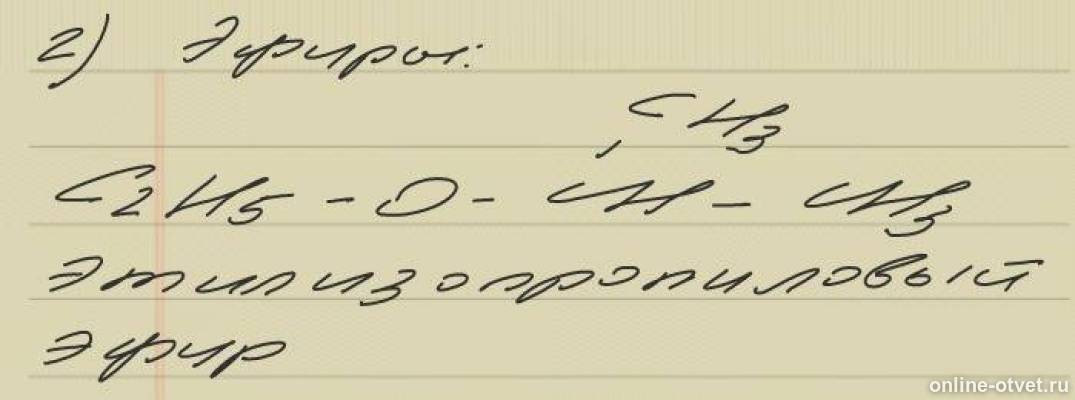 2) Эфиры:
CH3
C2H5 - O - CH - CH3
этилизопропиловый
эфир
online-otvet.ru